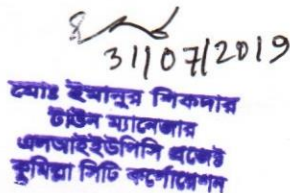 31/07/2019
মোঃ ইমানুর শিকদার
টাউন ম্যানেজার
এলআইইউপিসি প্রজেক্ট
কুমিল্লা সিটি কর্পোরেশন